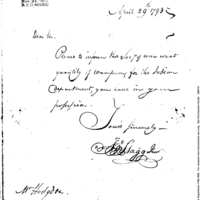 April 29th 1793
Dear Sir,
Please to inform the Secy of War what
quantity of wampum for the Indian
Department, you have in your
possession.
Yours sincerely
Jno Stagg Junr
Mr Hodgdon